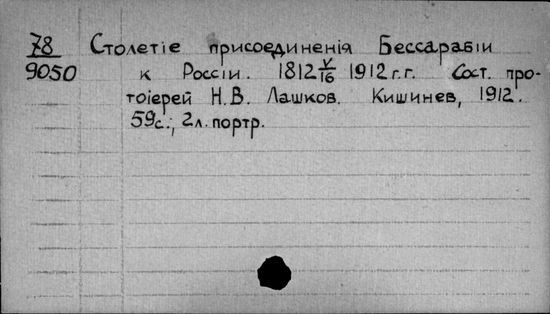 78 Столетіе присоединенія Бессарабіи
9050 к Россіи. 1812 V/16 1912 г.г. Сост. про-
тоіерей Н.В. Лашков. Кишинев, 1912.
59с.; 2л. портр.